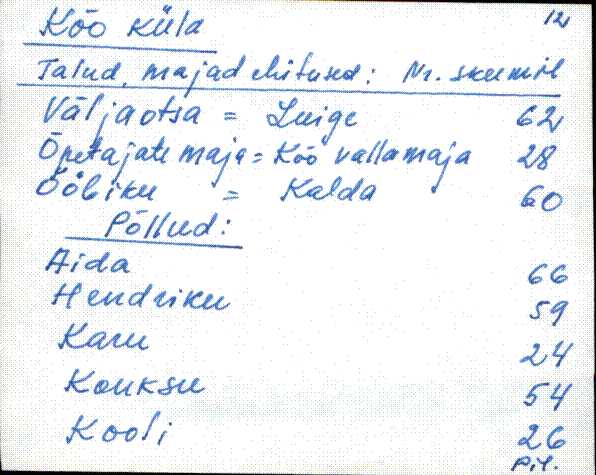 Kõo küla 12
Talud, majad ehitused: Nr. skeemil
Väljaotsa = Luige 62
Õpetajate maja = Kõo vallamaja 28
Ööbiku = Kalda 60
Põllud:
Aida 66
Hendriku 59
Karu 24
Kouksu 54
Kooli 26
pil.